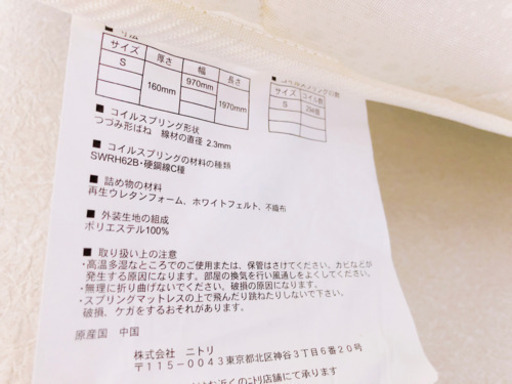 ■ 寸法
サイズ 厚さ 幅 長さ
S 160mm 970mm 1970mm
サイズ コイル数
S
■ コイルスプリング形状
つづみ形ばね 線材の直径 2.3mm
■ コイルスプリングの材料の種類
SWRH62B・硬鋼線C種
■ 詰め物の材料
再生ウレタンフォーム、ホワイトフェルト、不織布
■ 外装生地の組成
ポリエステル100%
■ 取り扱い上の注意
・高温多湿なところでのご使用または、保管はさけてください。カビなどが
発生する原因になります。部屋の換気を行い風通しをよくしてください。
・無理に折り曲げないでください。破損の原因になります。
・スプリングマットレスの上で飛んだり跳ねたりしないで下さい。
破損、ケガをするおそれがあります。
原産国 中国
株式会社 ニトリ
〒115-0043東京都北区神谷3丁目6番20号
お近くのニトリ店舗にて承ります